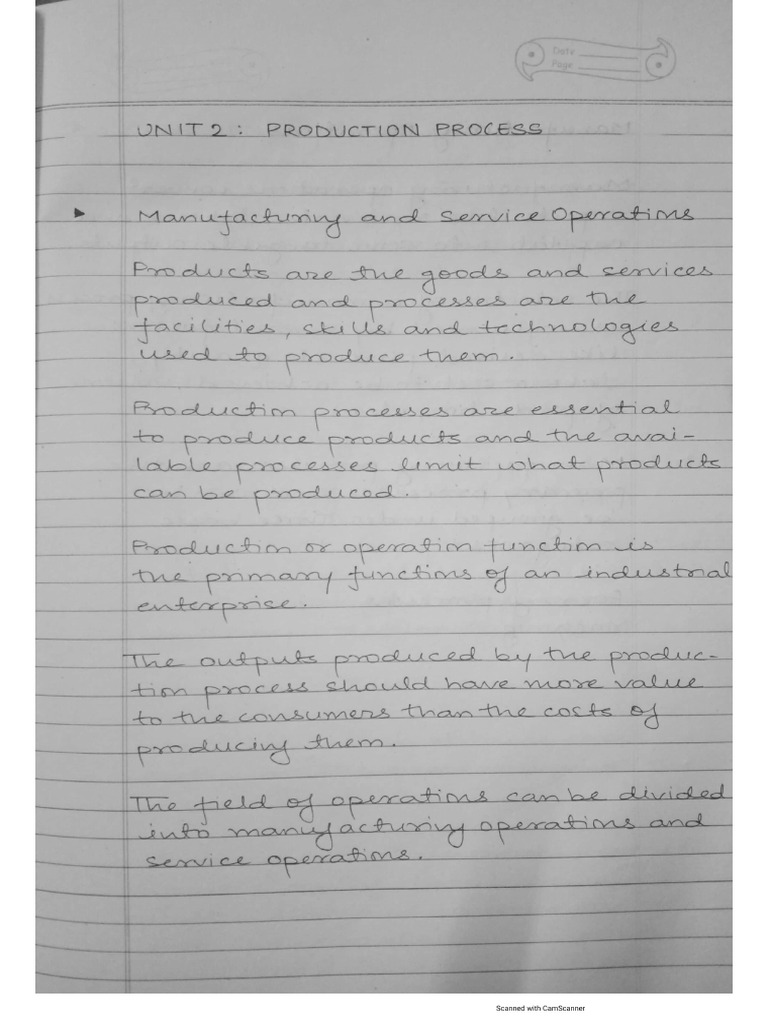 Date
Page
UNIT 2 : PRODUCTION PROCESS
Manufacturing and Service Operations
Products are the goods and services
produced and processes are the
facilities, skills and technologies
used to produce them.
Production processes are essential
to produce products and the avai-
lable processes limit what products
can be produced.
Production or operation function is
the primary functions of an industrial
enterprise.
The outputs produced by the produc-
tion process should have more value
to the consumers than the costs of
producing them.
The field of operations can be divided
into manufacturing operations and
service operations.
Scanned with CamScanner